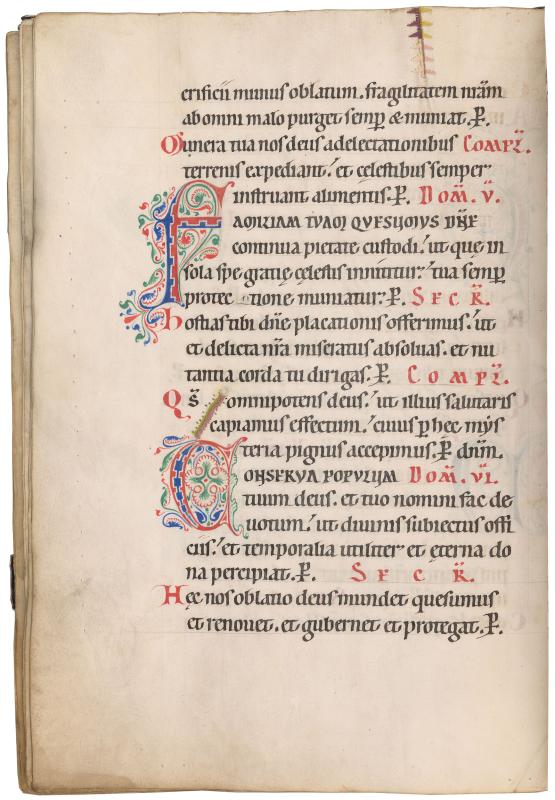 erificii munus oblatum. fragilitatem nr̄am
ab omni malo purget semp̄ & muniat. P̄.
Munera tua nos deus a delectationibus COMPL̄.
terrenis expediant. et celestibus semper
instruant alimentis. P̄. DOM̄. V̄.
FAMILIAM TUAM QUESUMUS DN̄E
continua pietate custodi. ut que in
sola spe gratię cęlestis innititur. tua semp̄
protectione muniatur. P̄. SECR̄.
Hostias tibi dn̄e placationis offerimus. ut
et delicta nr̄a miseratus absoluas. et nu
tantia corda tu dirigas. P̄. COMPL̄.
Qs̄ omnipotens deus. ut illius salutaris
capiamus effectum. cuius p̄ hec mys
teria pignus accepimus. P̄. dn̄m.
CONSERVA POPULUM DOM̄. VI.
tuum deus. et tuo nomini fac de
uotum. ut diuinis subiectus offi
ciis. et temporalia utiliter et ęterna do
na percipiat. P̄. SECR̄.
Hęc nos oblatio deus mundet quesumus
et renouet. et gubernet et protegat. P̄.